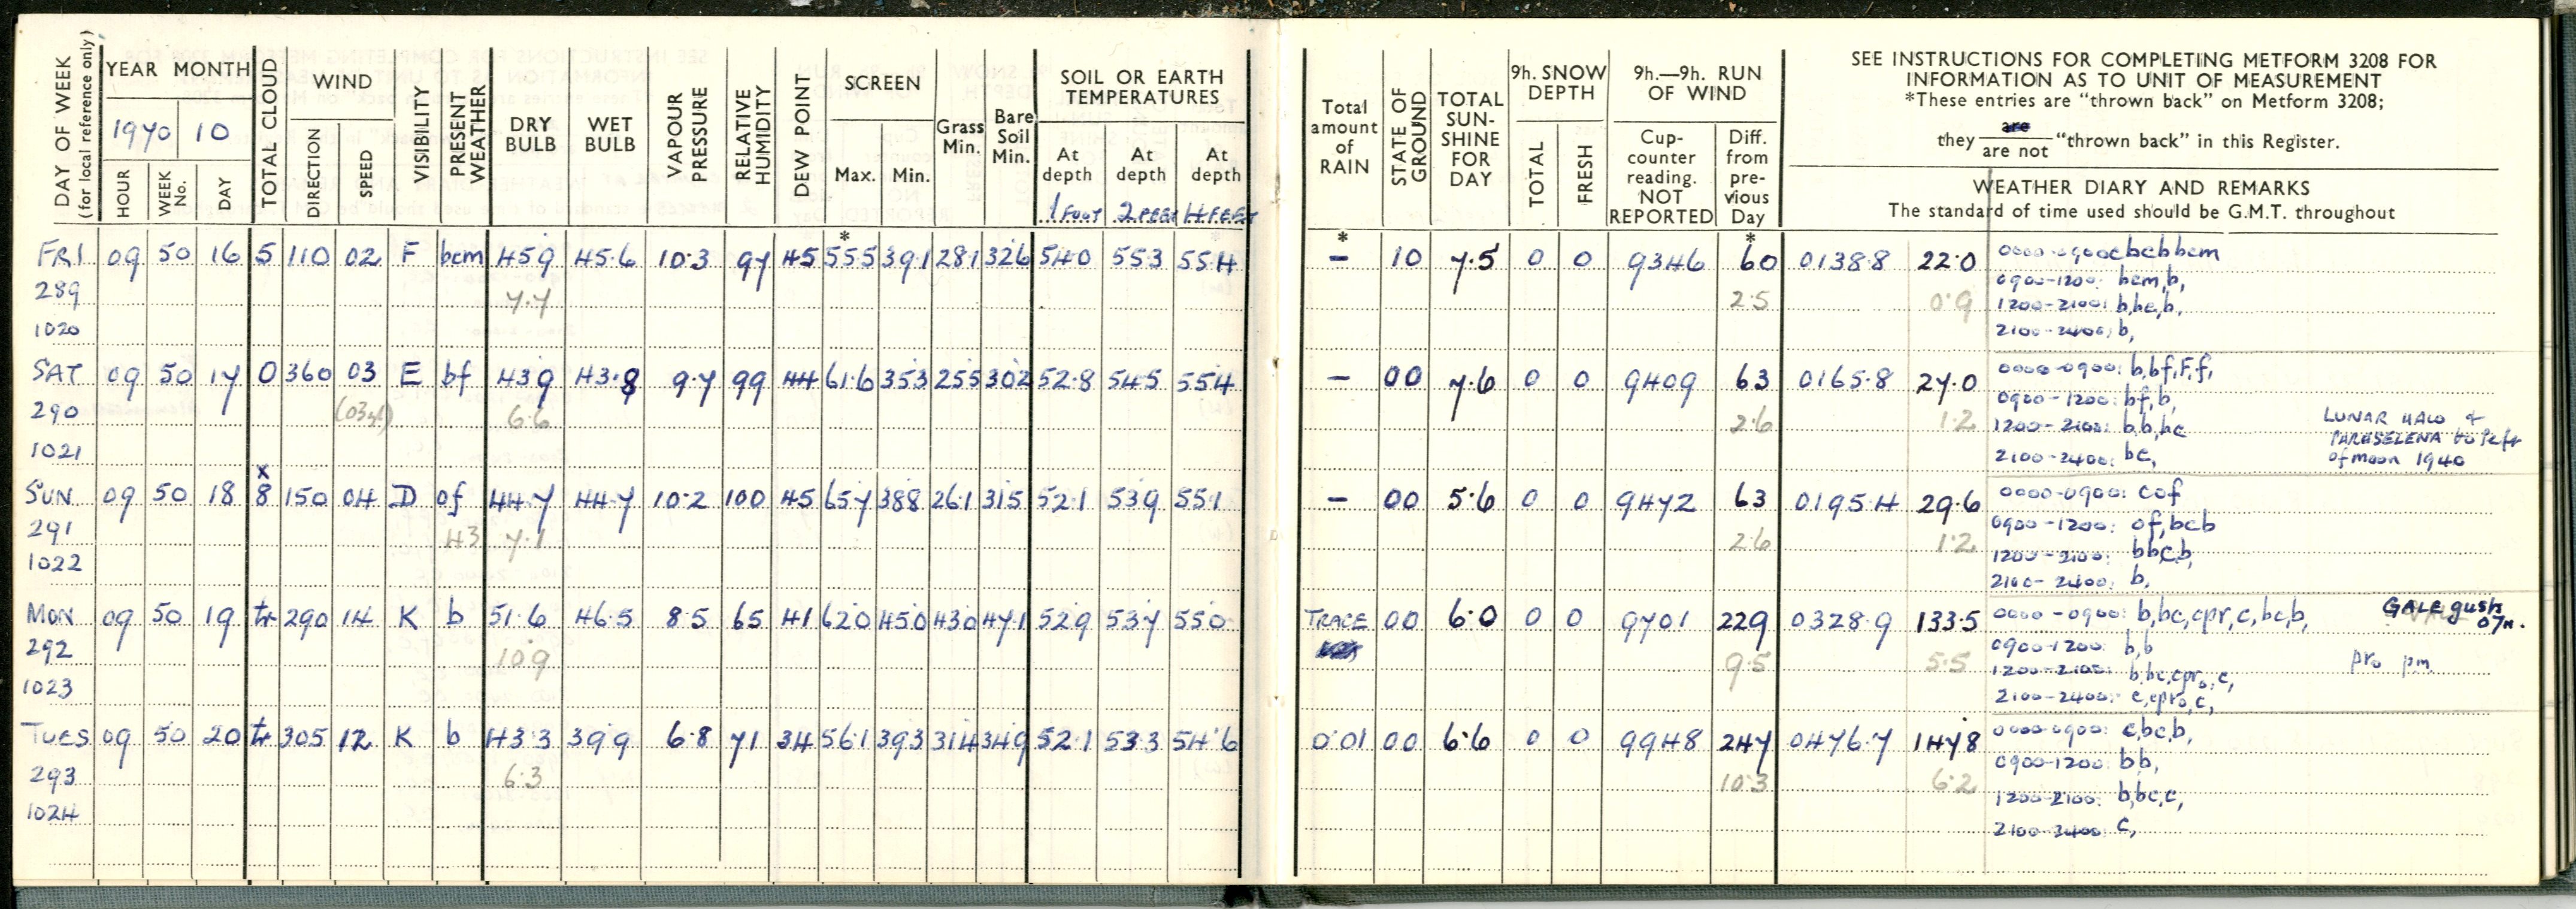 DAY OF WEEK (for local reference only)
YEAR MONTH
1970 10
HOUR WEEK No. DAY
TOTAL CLOUD
WIND
DIRECTION SPEED
VISIBILITY
PRESENT WEATHER
DRY BULB
WET BULB
VAPOUR PRESSURE
RELATIVE HUMIDITY
DEW POINT
SCREEN
Max. Min.
Grass Min.
Bare Soil Min.
SOIL OR EARTH TEMPERATURES
At depth At depth At depth
1 FOOT 2 FEET 4 FEET
Total amount of RAIN
STATE OF GROUND
TOTAL SUN-SHINE FOR DAY
9h. SNOW DEPTH
TOTAL FRESH
9h.—9h. RUN OF WIND
Cup-counter reading. NOT REPORTED
Diff. from pre-vious Day
SEE INSTRUCTIONS FOR COMPLETING METFORM 3208 FOR
INFORMATION AS TO UNIT OF MEASUREMENT
*These entries are "thrown back" on Metform 3208;
they are / are not "thrown back" in this Register.
WEATHER DIARY AND REMARKS
The standard of time used should be G.M.T. throughout
* * *
FRI 09 50 16 5 110 02 F bcm 45.9 45.6 10.3 97 45 55.5 39.1 28.1 32.6 54.0 55.3 55.4 – 10 7.5 0 0 9346 60 0138.8 22.0 0000-0900 cbcbbcm
0900-1200: bcm,b,
289 7.7 2.5 0.9 1200-2100: b,bc,b,
1020 2100-2400: b,
SAT 09 50 17 0 360 03 E bf 43.9 43.8 9.7 99 44 61.6 35.3 25.5 30.2 52.8 54.5 55.4 – 00 7.6 0 0 9409 63 0165.8 27.0 0000-0900: b,bf,F,f,
0900-1200: bf,b,
290 6.6 2.6 1.2 1200-2100: b,b,bc LUNAR HALO + PARASELENA to left of moon 1940
1021 2100-2400: bc,
x
SUN 09 50 18 8 150 04 D of 44.7 44.7 10.2 100 45 65.7 38.8 26.1 31.5 52.1 53.9 55.1 – 00 5.6 0 0 9472 63 0195.4 29.6 0000-0900: cof
0900-1200: of,bcb
291 43 7.1 2.6 1.2 1200-2100: bbc,b,
1022 2100-2400: b,
MON 09 50 19 tr 290 14 K b 51.6 46.5 8.5 65 41 62.0 45.0 43.0 47.1 52.9 53.7 55.0 TRACE 00 6.0 0 0 9701 229 0328.9 133.5 0000-0900: b,bc,cpr,c,bc,b, GALE gush 07h.
0900-1200: b,b
292 10.9 9.5 5.5 1200-2100: b,bc,cpro,c, pro pm
1023 2100-2400: c,cpro,c,
TUES 09 50 20 tr 305 12 K b 43.3 39.9 6.8 71 34 56.1 39.3 31.4 34.9 52.1 53.3 54.6 0.01 00 6.6 0 0 9948 247 0476.7 147.8 0000-0900: c,bc,b,
0900-1200: bb,
293 6.3 10.3 6.2 1200-2100: b,bc,c,
1024 2100-2400: c,